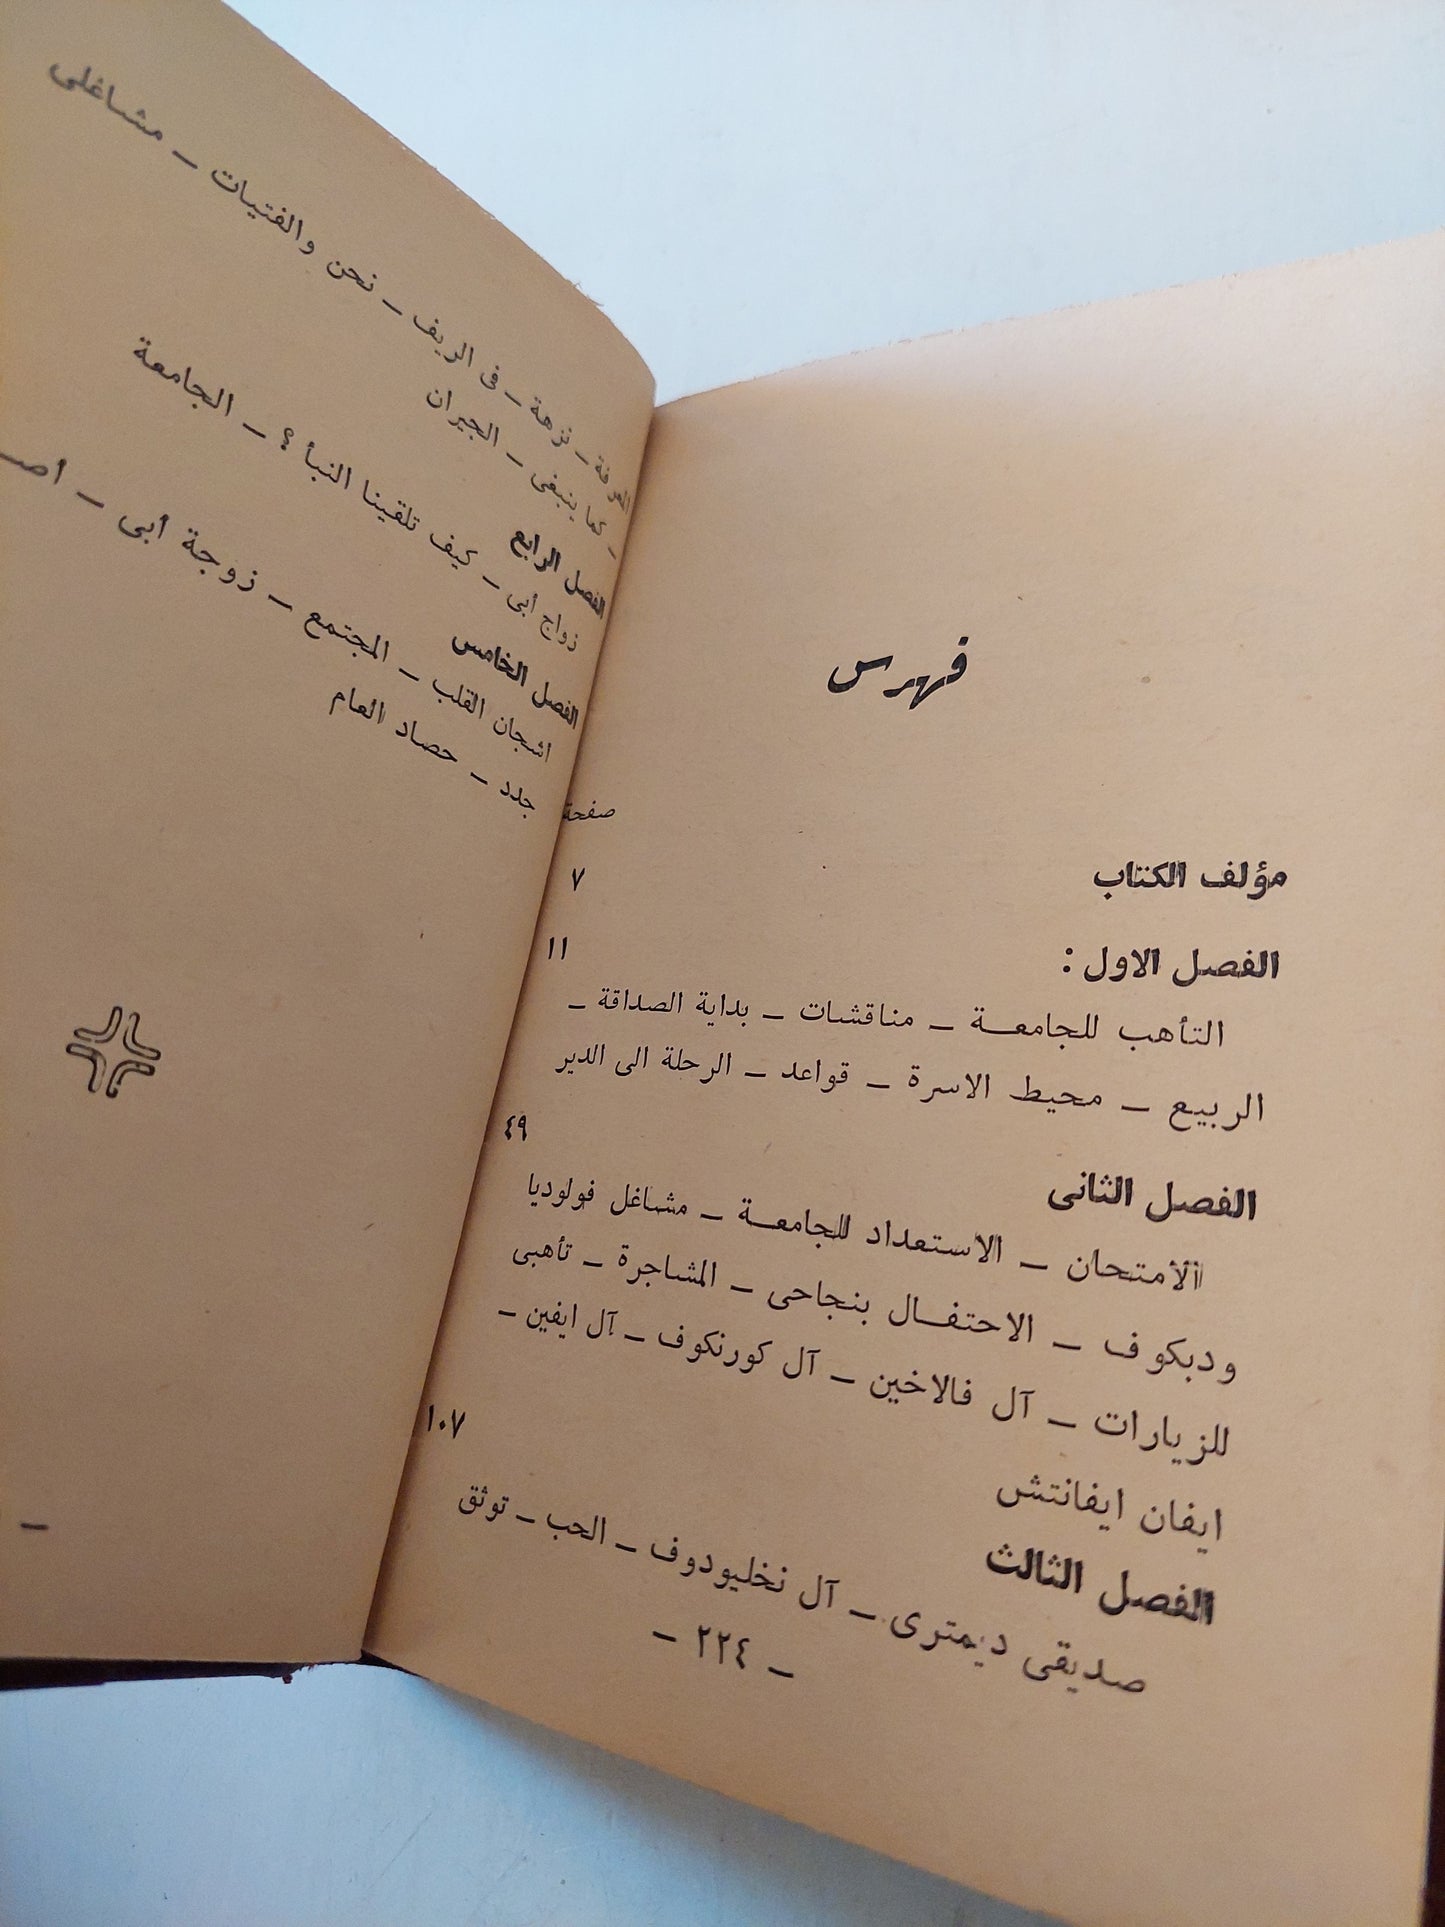 فهرس
صفحة
مؤلف الكتاب ٧
الفصل الاول : ١١
التأهب للجامعـــة ـ مناقشات ـ بداية الصداقة ـ
الربيع ـ محيط الاسرة ـ قواعد ـ الرحلة الى الدير
الفصل الثانى ٤٩
الامتحان ـ الاستعداد للجامعـــة ـ مشاغل فولوديا
ودبكوف ـ الاحتفـــال بنجاحى ـ المشاجرة ـ تأهبى
للزيارات ـ آل فالاخين ـ آل كورنكوف ـ آل ايفين ـ
ايفان ايفانتش
الفصل الثالث ١٠٧
صديقى ديمترى ـ آل نخليودوف ـ الحب ـ توثق
ـ ٢٢٤ ـ
المعرفة ـ نزهة ـ فى الريف ـ نحن والفتيات ـ مشاغلى
ـ كما ينبغى ـ الجيران
الفصل الرابع
زواج أبى ـ كيف تلقينا النبأ ؟ ـ الجامعة
الفصل الخامس
اشجان القلب ـ المجتمع ـ زوجة أبى ـ أصـ
جدد ـ حصاد العام
ـ